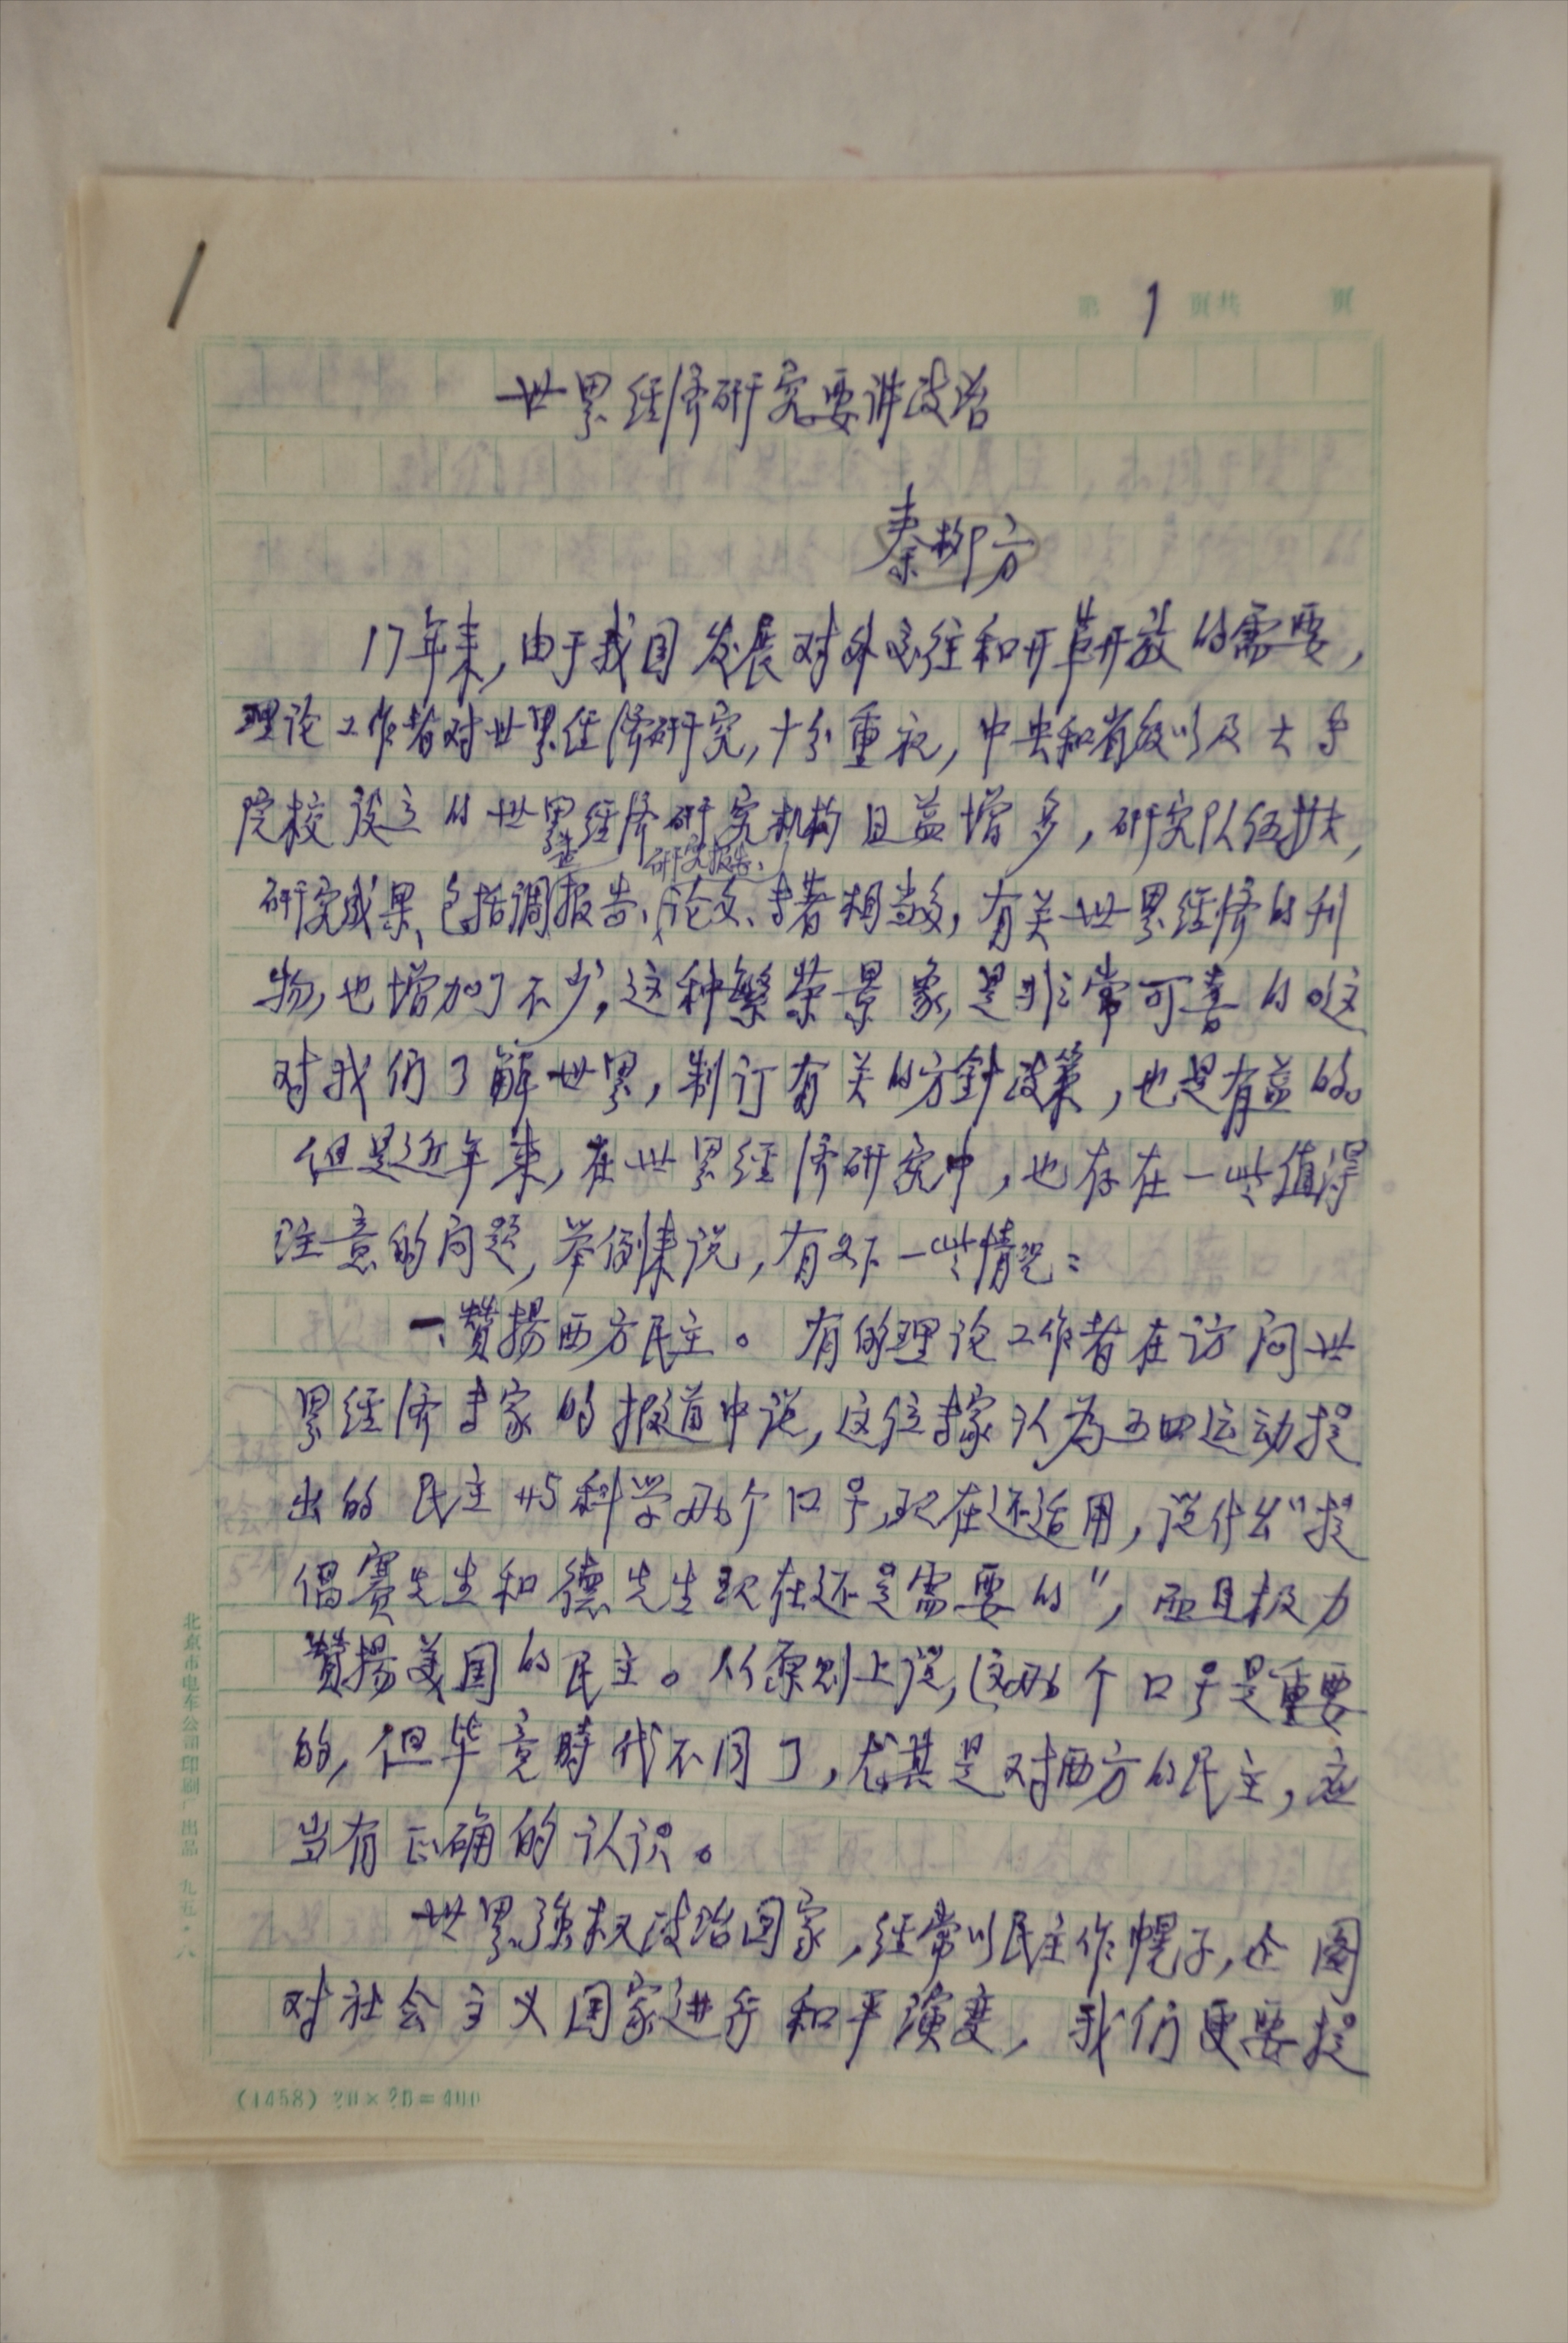 第 1 页共 页
世界经济研究要讲政治
秦柳方
17年来,由于我国发展对外交往和开革开放的需要,
理论工作者对世界经济研究,十分重视,中央和省级以及大学
院校设立的世界经济研究机构日益增多,研究队伍扩大,
查 研究报告、
研究成果、包括调报告、论文、专著相当多,有关世界经济的刊
物,也增加了不少,这种繁荣景象,是非常可喜的。这
对我们了解世界,制订有关的方针政策,也是有益的。
但是近年来,在世界经济研究中,也存在一些值得
注意的问题,举例来说,有以下一些情况:
一、赞揚西方民主。有的理论工作者在访问世
界经济专家的报道中说,这位专家认为五四运动提
出的民主与科学两个口号,现在还适用,说什么“提
倡赛先生和德先生现在还是需要的”,而且极力
赞揚美国的民主。从原则上说,这两个口号是重要
的,但毕竟時代不同了,尤其是对西方的民主,应
当有正确的认识。
世界强权政治国家,经常以民主作幌子,企图
对社会主义国家进行和平演变,我们更要提
(1458)20×20=400
北京市电车公司印刷厂出品 九五·八